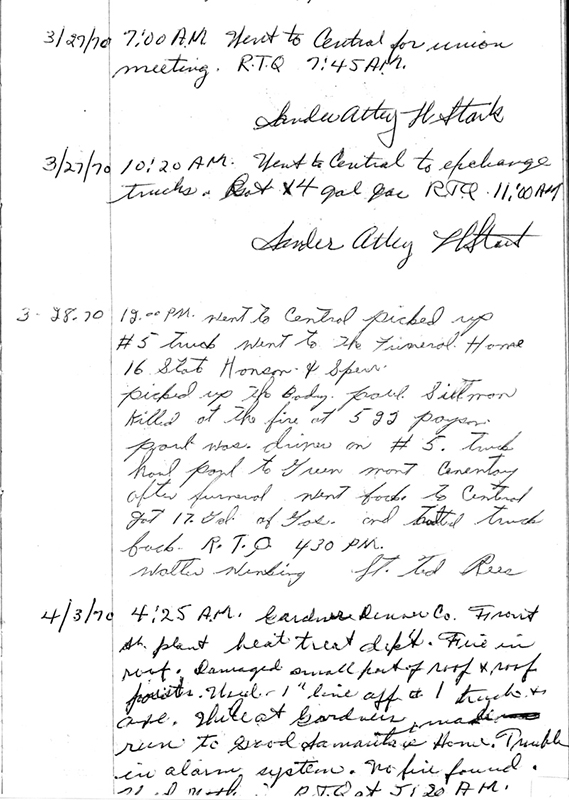 3/27/70 7:00 A.M. Went to Central for union
meeting. R.T.Q 7:45 A.M.
Sander Attey H Stark
3/27/70 10:20 AM. Went to Central to exchange
trucks. Got 14 gal gas R.T.Q. 11:00 AM
Sander Attey H Stark
3-28.70 12.00 PM. went to Central picked up
#5 truck went to the Funeral Home
16 Stat Honson & Speer
picked up the Body. paul Sietman
killed at the fire at 522 payson
paul was. driver on #5. truck
haul paul to Green mont Cementary
after funeral went back to Central
got 17. Gal of Gas. and truck
back. R.T.Q. 430 PM.
Walter Lt. Ted Rees
4/3/70 4:25 A.M. Gardner Denver Co. Front
St. plant heat treat dept. Fire in
roof. Damaged small part of roof & roof
Used - 1" line off # 1 truck &
axe. While at Gardner, made
run to Good Samaritan Home. Trouble
in alarm system. No fire found.
R.T.Q at 5:20 A.M.